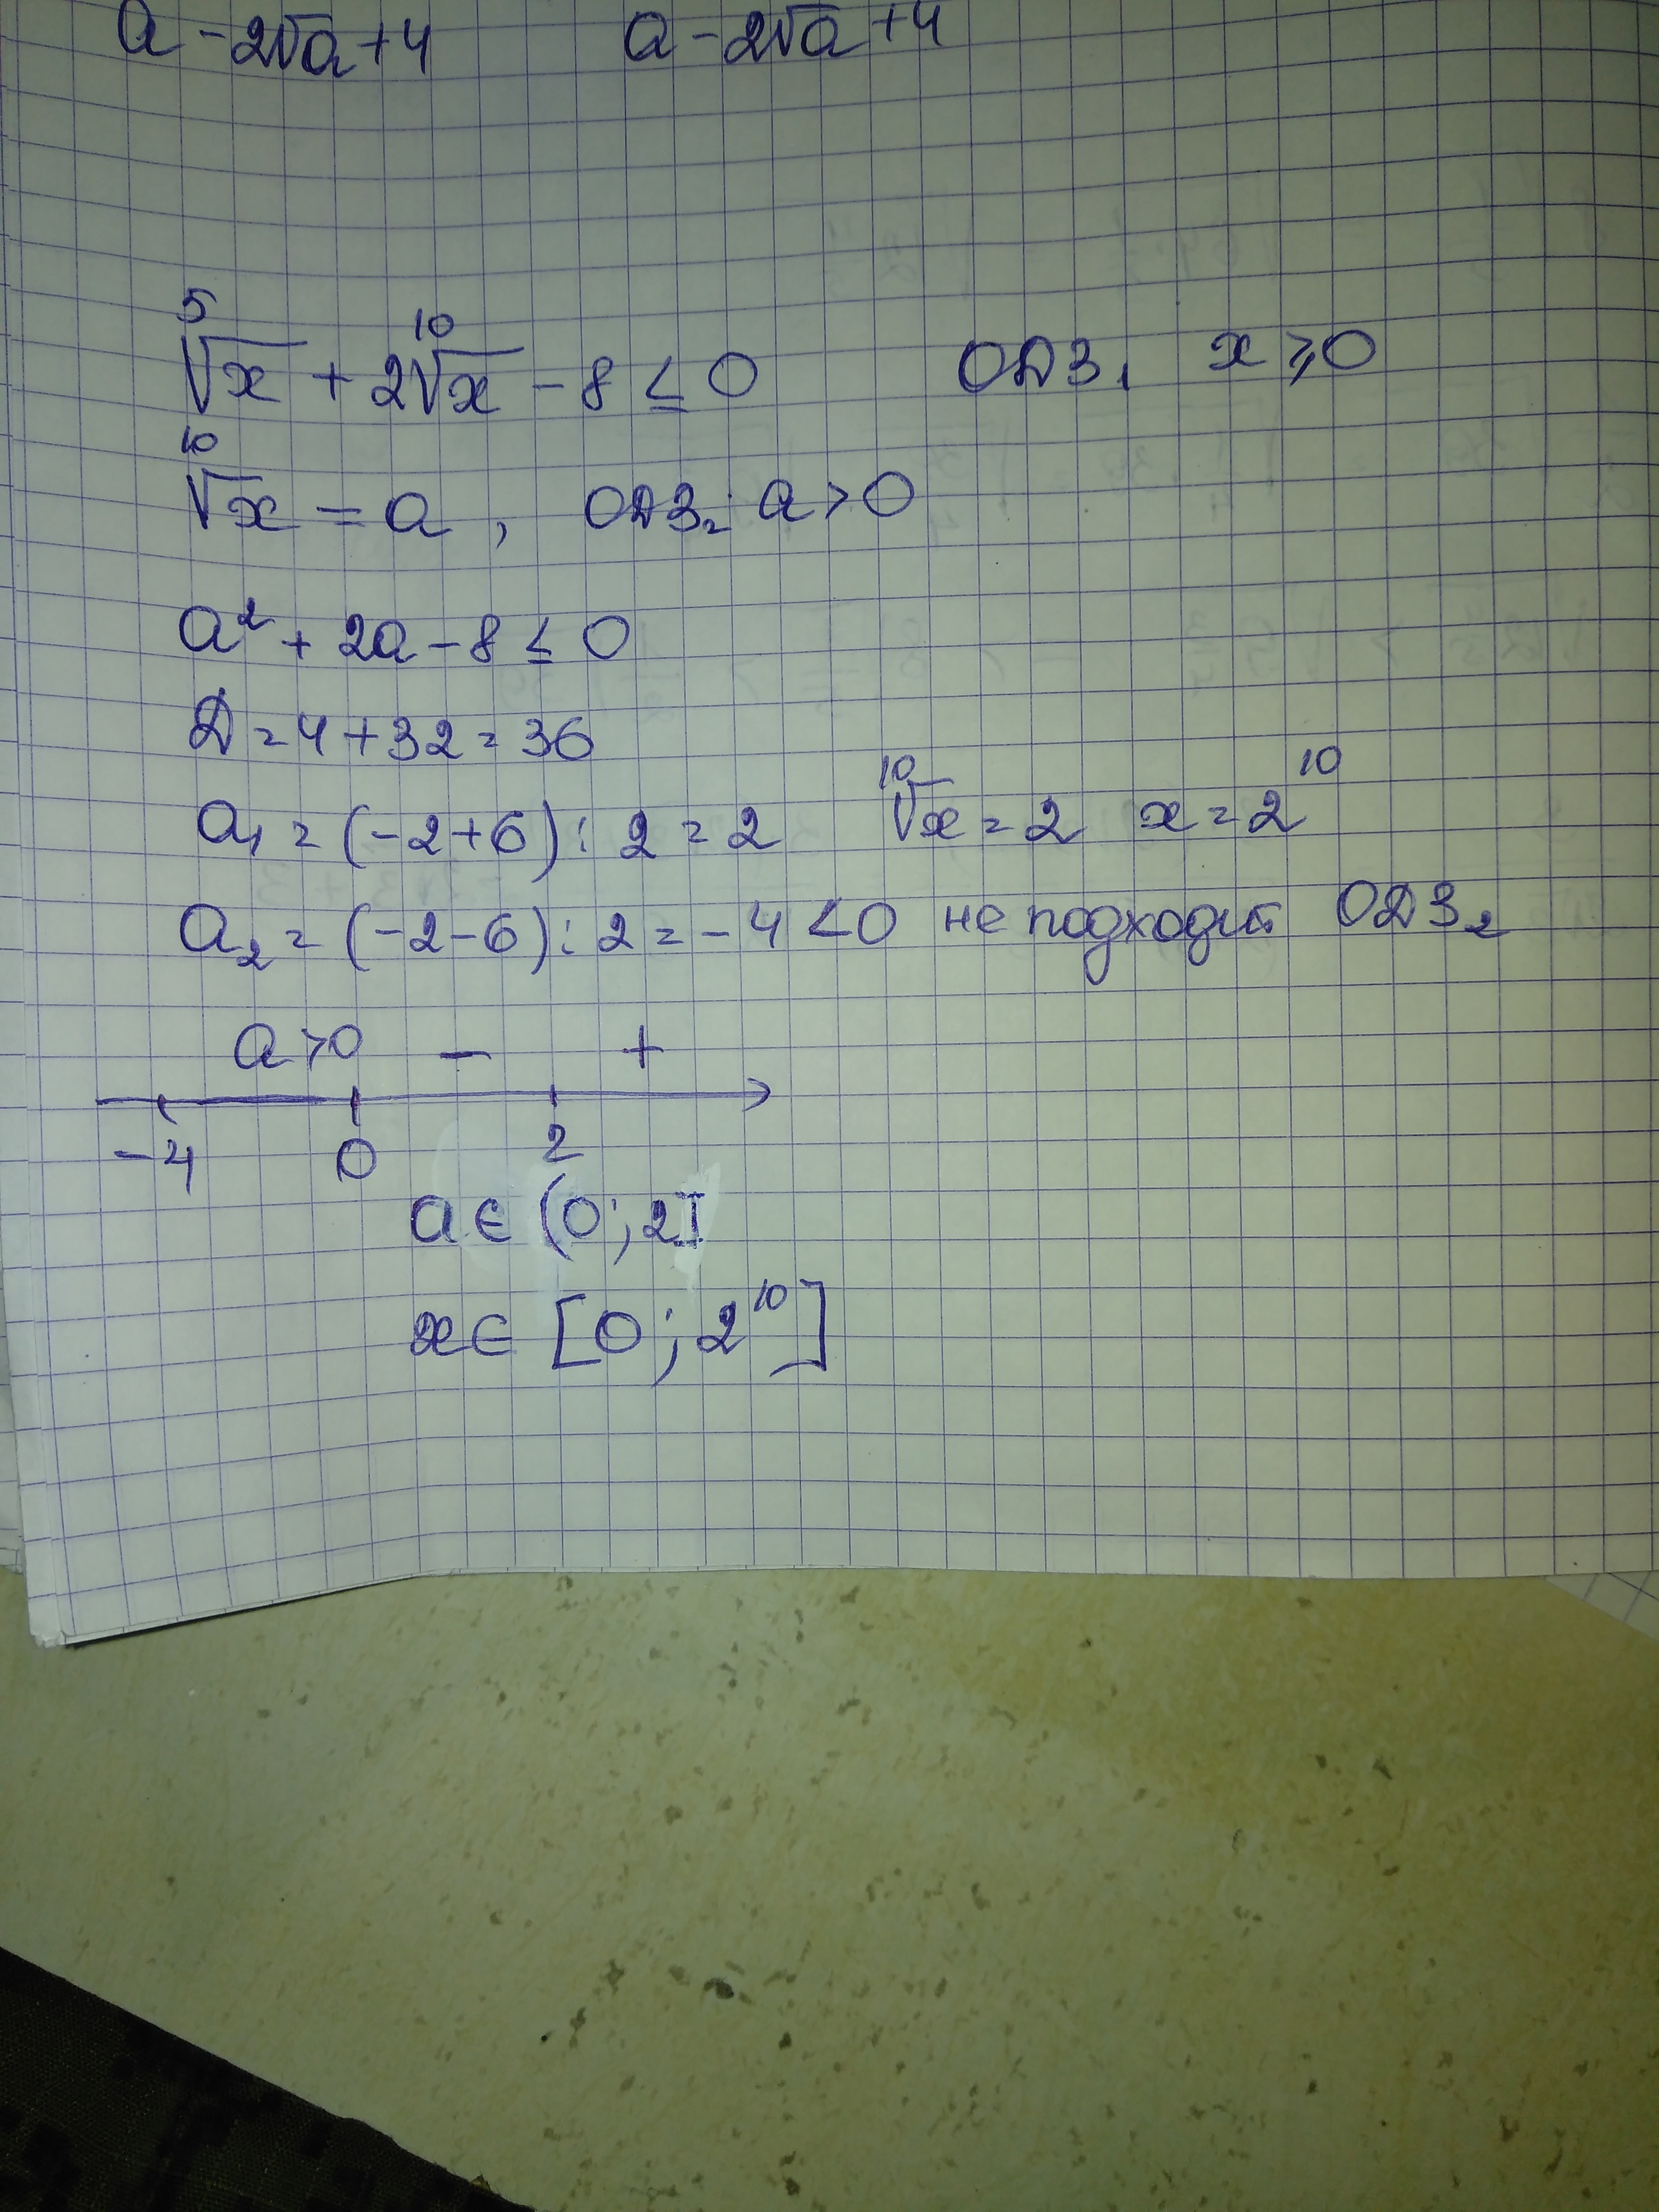 a - 2√a + 4 a - 2√a + 4
⁵√x + 2¹⁰√x - 8 ≤ 0 ОДЗ₁ x ⩾ 0
¹⁰√x = a , ОДЗ₂: a > 0
a² + 2a - 8 ≤ 0
Д = 4 + 32 = 36
a₁ = (-2+6) : 2 = 2 ¹⁰√x = 2 x = 2¹⁰
a₂ = (-2-6) : 2 = -4 < 0 не подходит ОДЗ₂
a > 0 - +
-4 0 2
a ∈ (0; 2]
x ∈ [0; 2¹⁰]